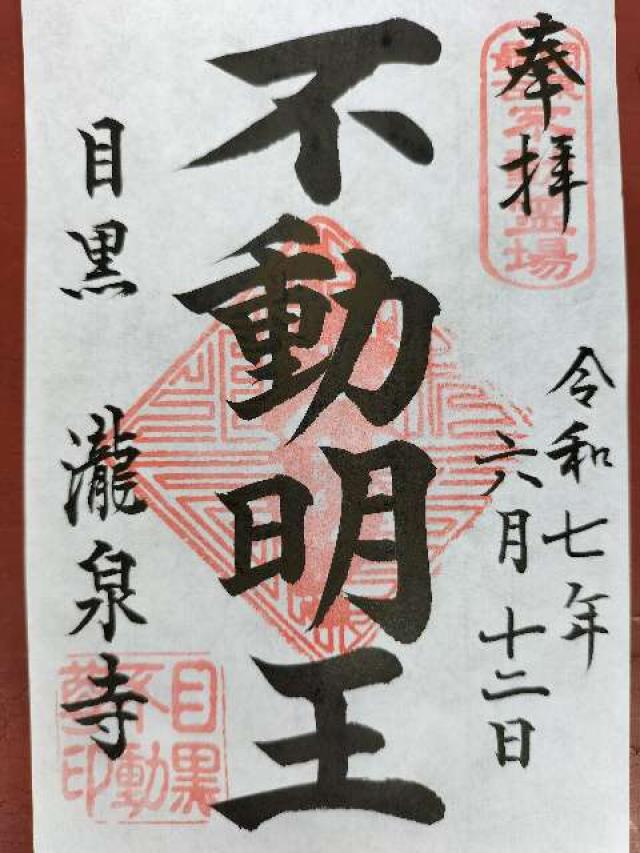 奉拝
令和七年
六月十二日
不動明王
目黒 瀧泉寺
不動霊場
目黒
不動
尊印